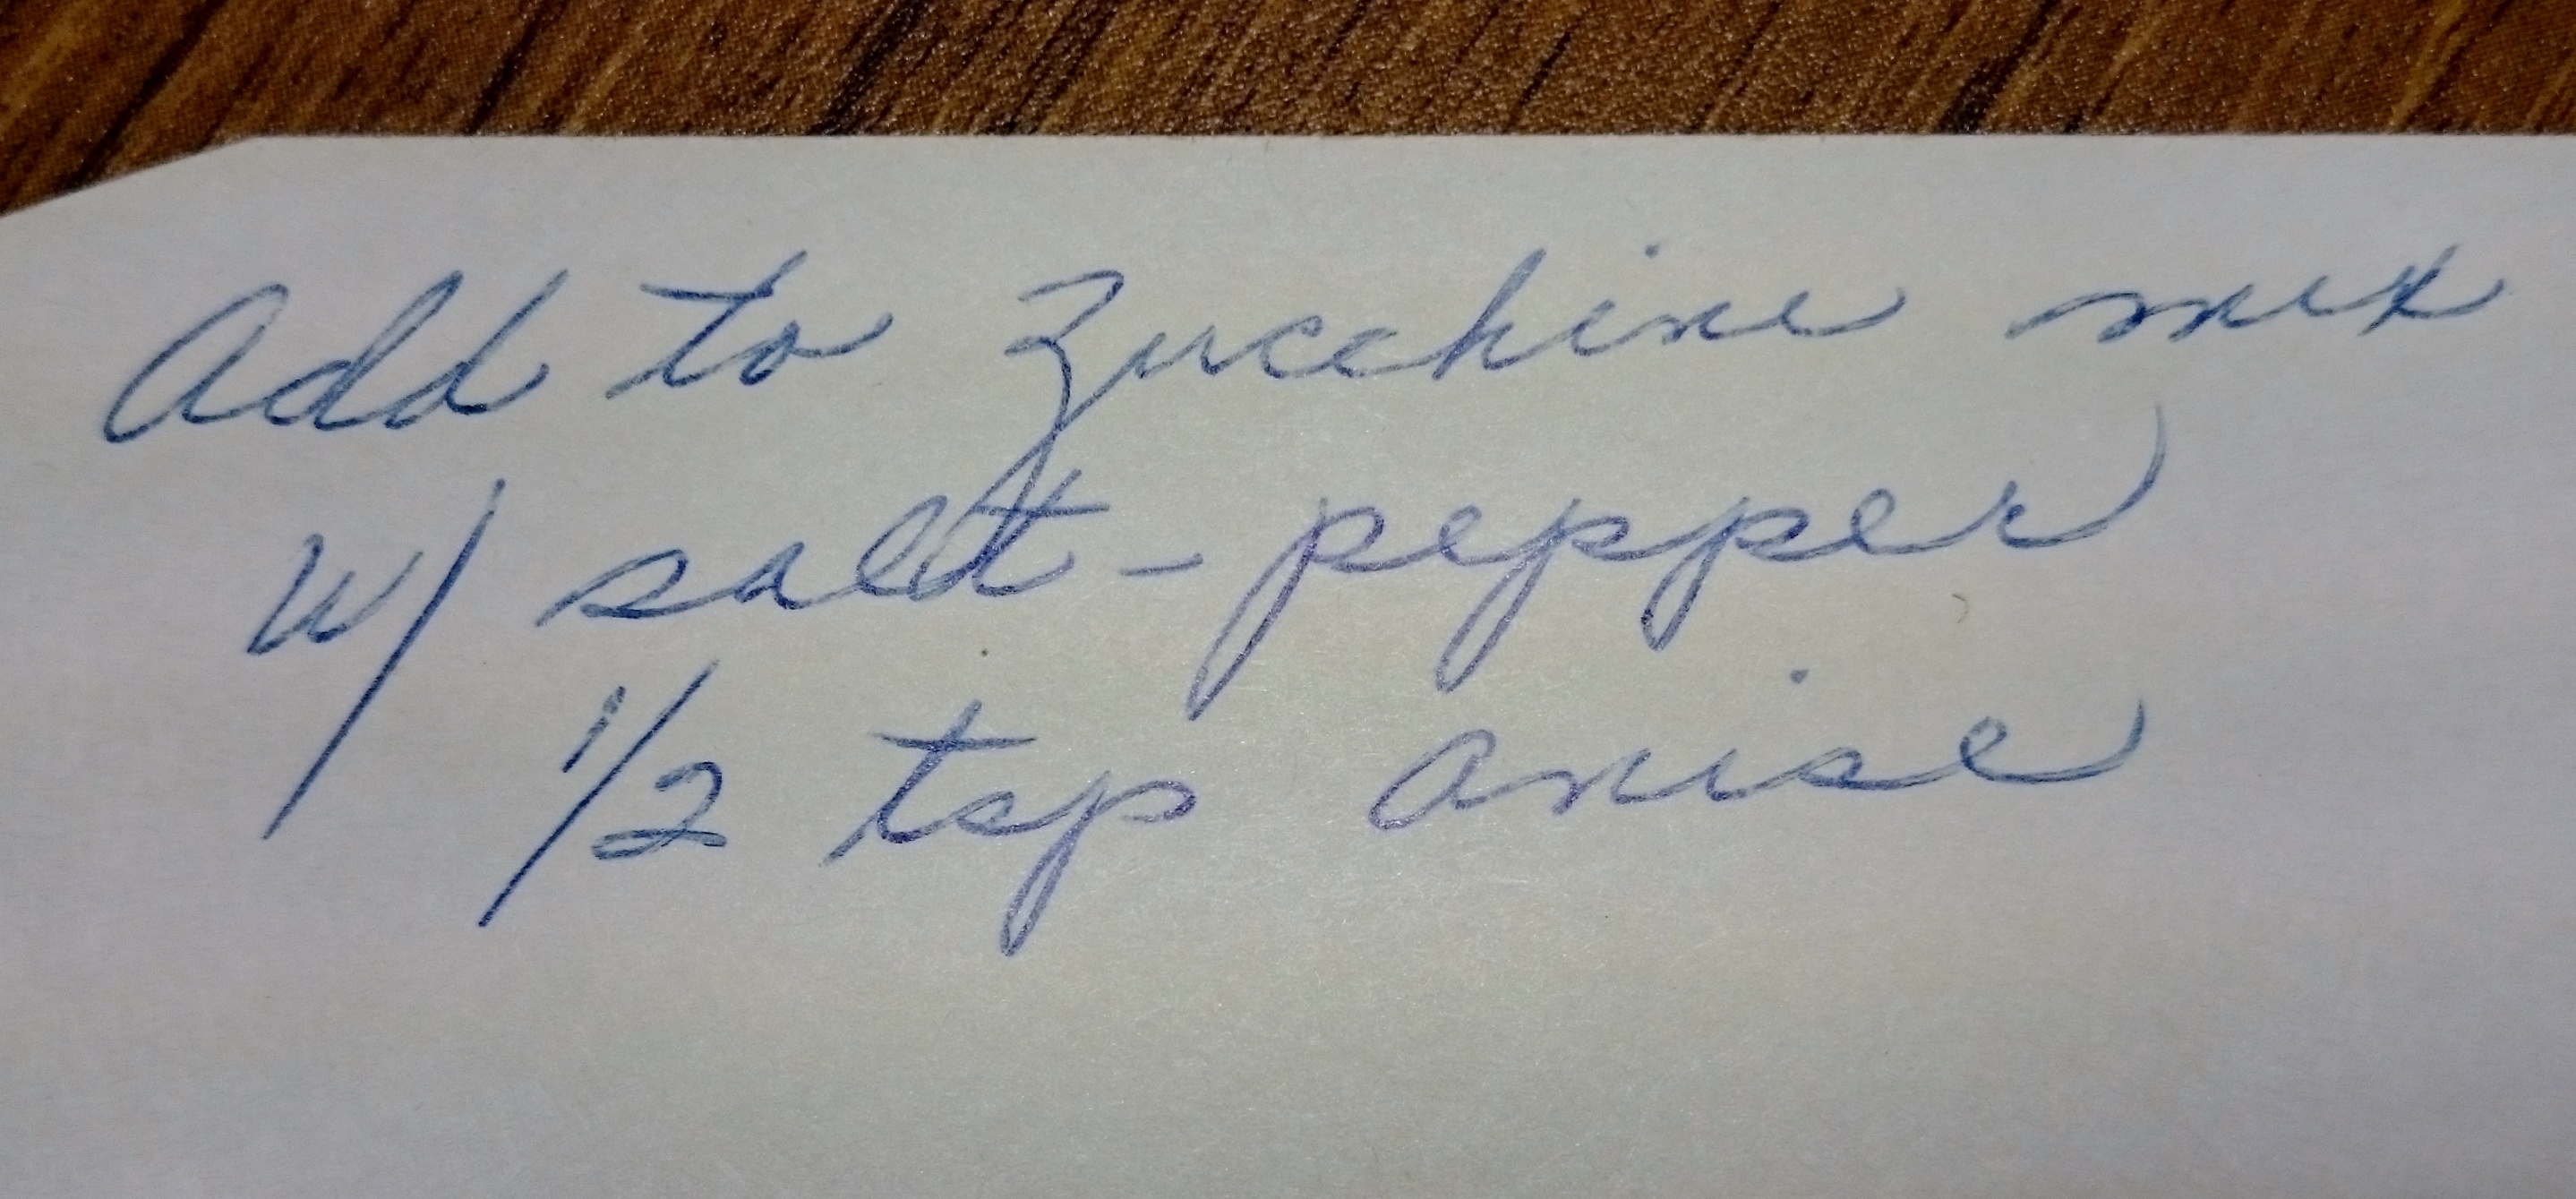 Add to Zucchine mix
w/ salt - pepper
1/2 tsp anise